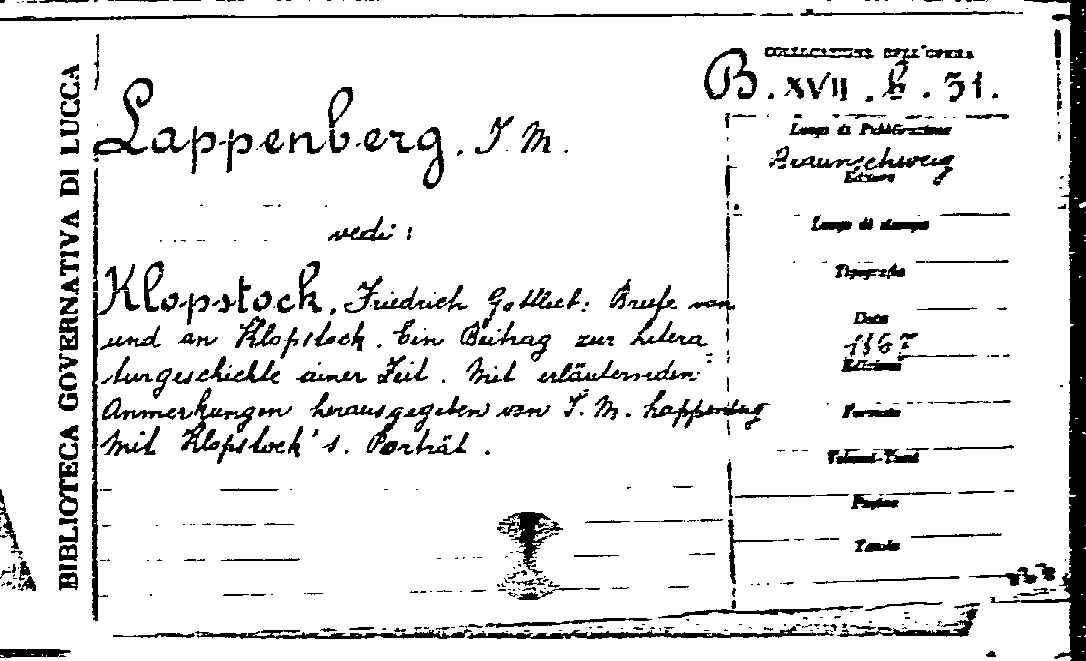 BIBLIOTECA GOVERNATIVA DI LUCCA
COLLOCAZIONE DELL'OPERA
B. XVII. b. 31.
Lappenberg. J. M.
vedi:
Klopstock. Friedrich Gottlieb: Briefe von
und an Klopstock. Ein Beitrag zur Litera=
turgeschichte einer Zeit. Mit erläuternden
Anmerkungen herausgegeben von J. M. Lappenberg
Mit Klopstock's. Porträt.
Luogo di Pubblicazione
Braunschweig
Editore
Luogo di stampa
Tipografia
Data
1867
Edizione
Formato
Volumi-Tomi
Pagine
Tavole